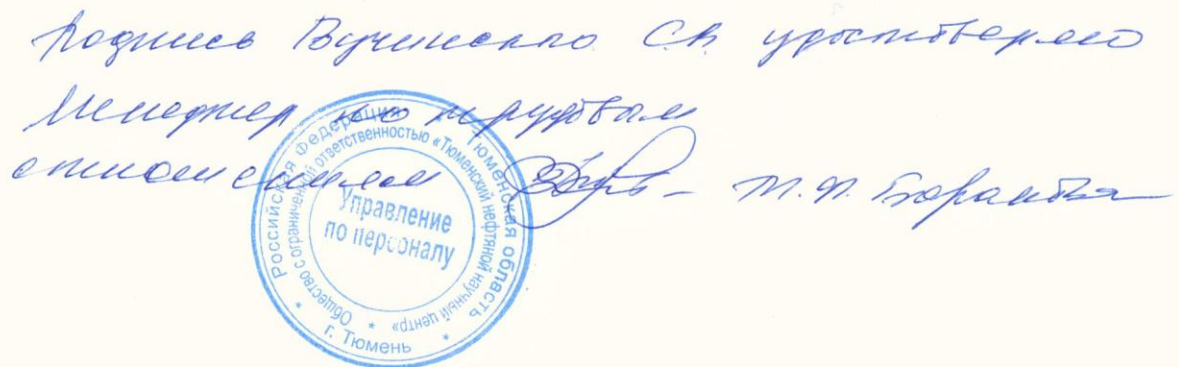 Подпись Вершинина С.В. удостоверяю
Менеджер по трудовым
отношениям
Российская Федерация * Тюменская область * г. Тюмень *
Общество с ограниченной ответственностью «Тюменский нефтяной научный центр» *
Управление
по персоналу